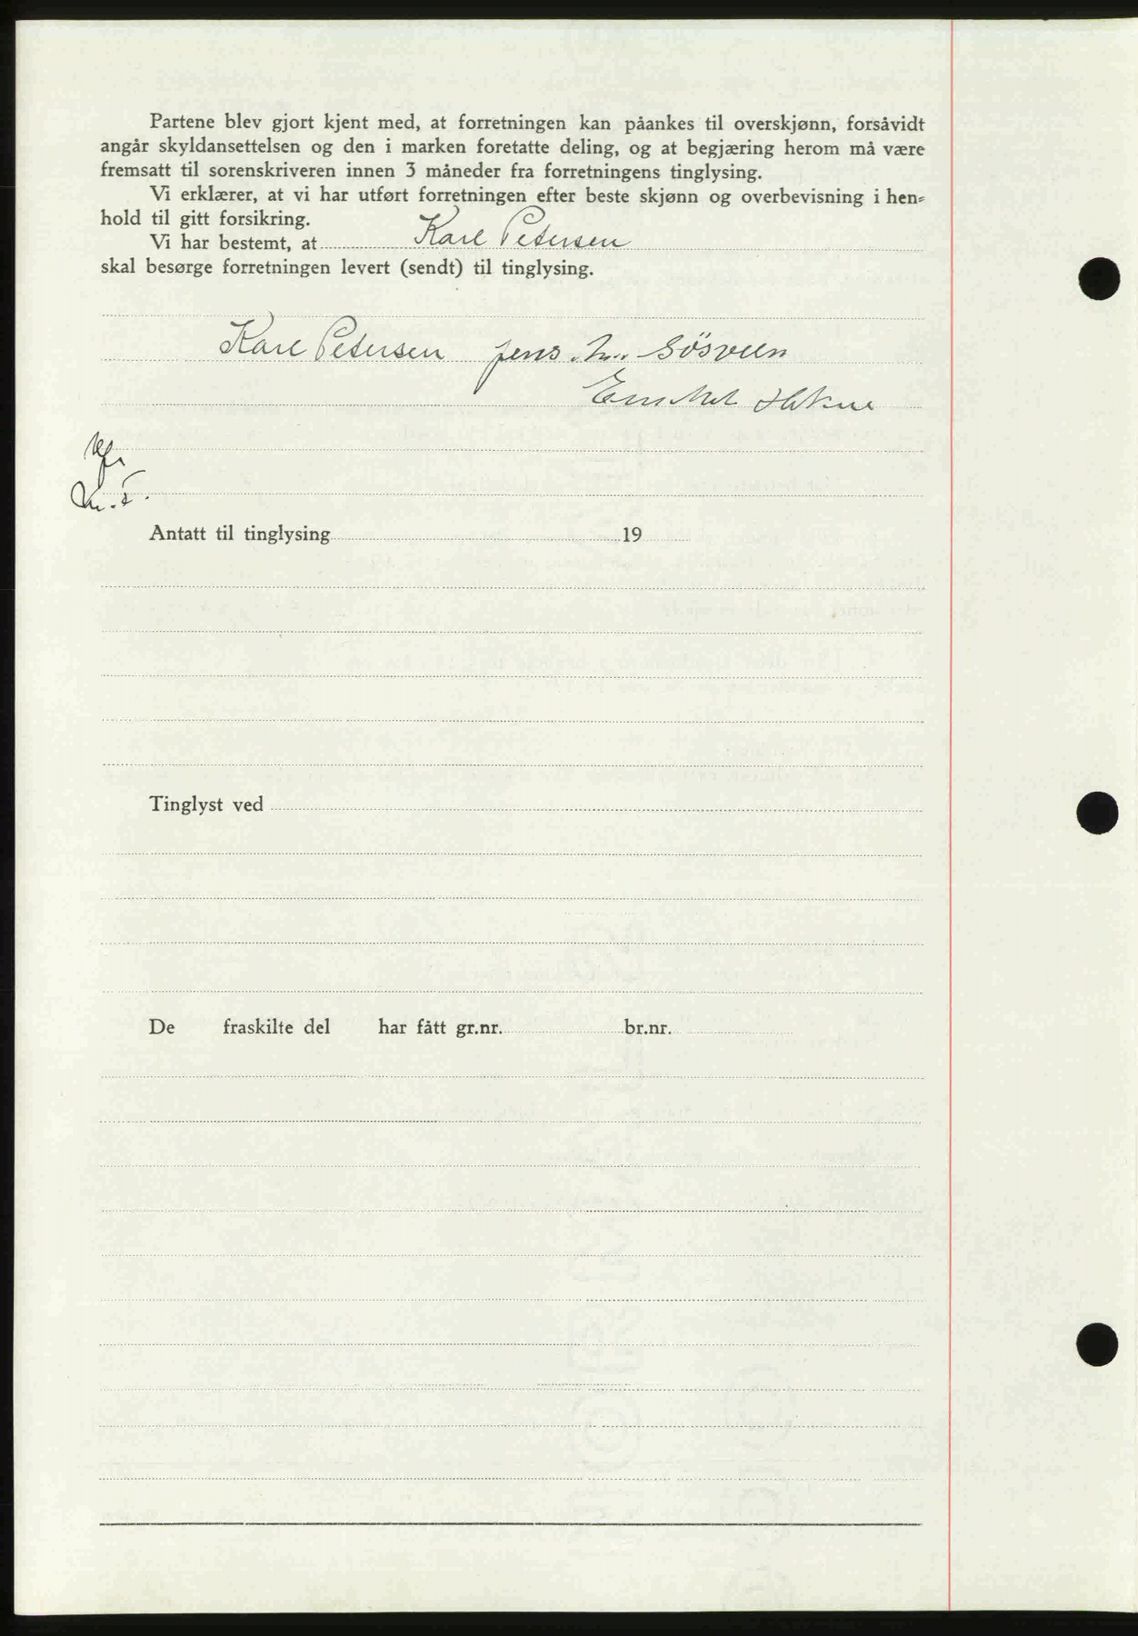 Partene blev gjort kjent med, at forretningen kan påankes til overskjønn, forsåvidt
angår skyldansettelsen og den i marken foretatte deling, og at begjæring herom må være
fremsatt til sorenskriveren innen 3 måneder fra forretningens tinglysing.
Vi erklærer, at vi har utført forretningen efter beste skjønn og overbevisning i hen-
hold til gitt forsikring.
Vi har bestemt, at Karl Petersen
skal besørge forretningen levert (sendt) til tinglysing.
Karl Petersen Jens
Antatt til tinglysing 19
Tinglyst ved
De fraskilte del har fått gr.nr. br.nr.